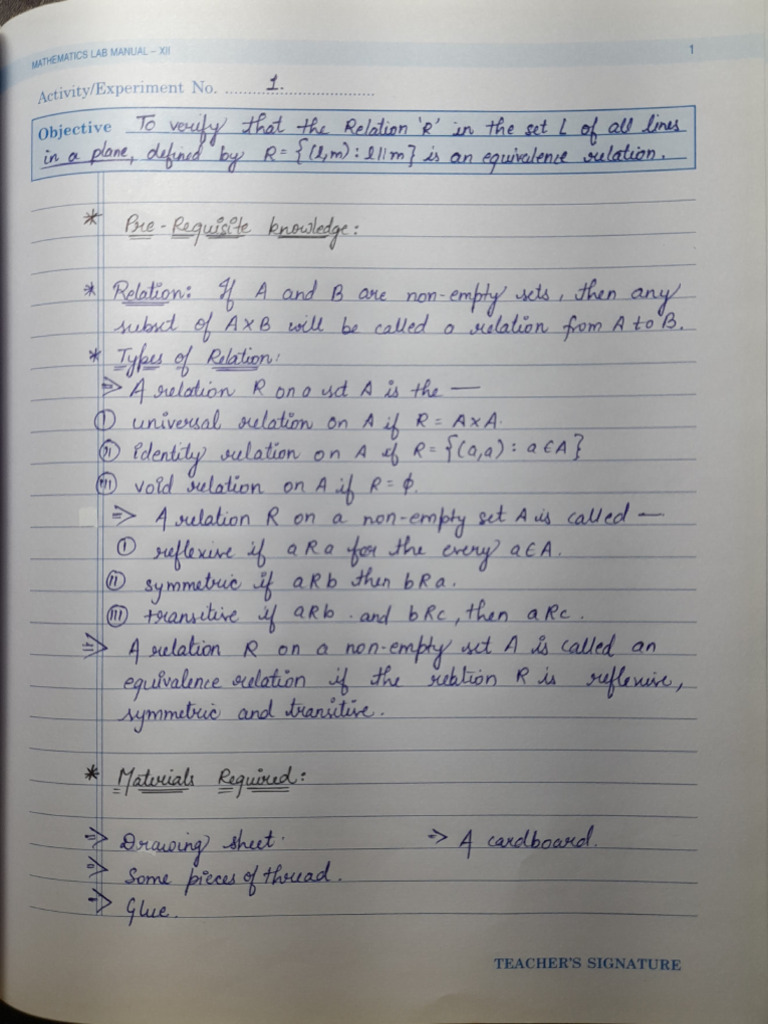 MATHEMATICS LAB MANUAL – XII
1
Activity/Experiment No. ..... 1. .....
Objective To verify that the Relation 'R' in the set L of all lines
in a plane, defined by R = {(l,m) : l || m} is an equivalence relation.
* Pre-Requisite knowledge:
* Relation: If A and B are non-empty sets, then any
subset of A×B will be called a relation from A to B.
* Types of Relation:
⇒ A relation R on a set A is the —
(i) universal relation on A if R = A×A.
(ii) identity relation on A if R = {(a,a) : a∈A}
(iii) void relation on A if R = ϕ.
⇒ A relation R on a non-empty set A is called —
(i) reflexive if aRa for the every a∈A.
(ii) symmetric if aRb then bRa.
(iii) transitive if aRb and bRc, then aRc.
⇒ A relation R on a non-empty set A is called an
equivalence relation if the relation R is reflexive,
symmetric and transitive.
* Materials Required:
⇒ Drawing sheet. → A cardboard.
⇒ Some pieces of thread.
⇒ Glue.
TEACHER'S SIGNATURE